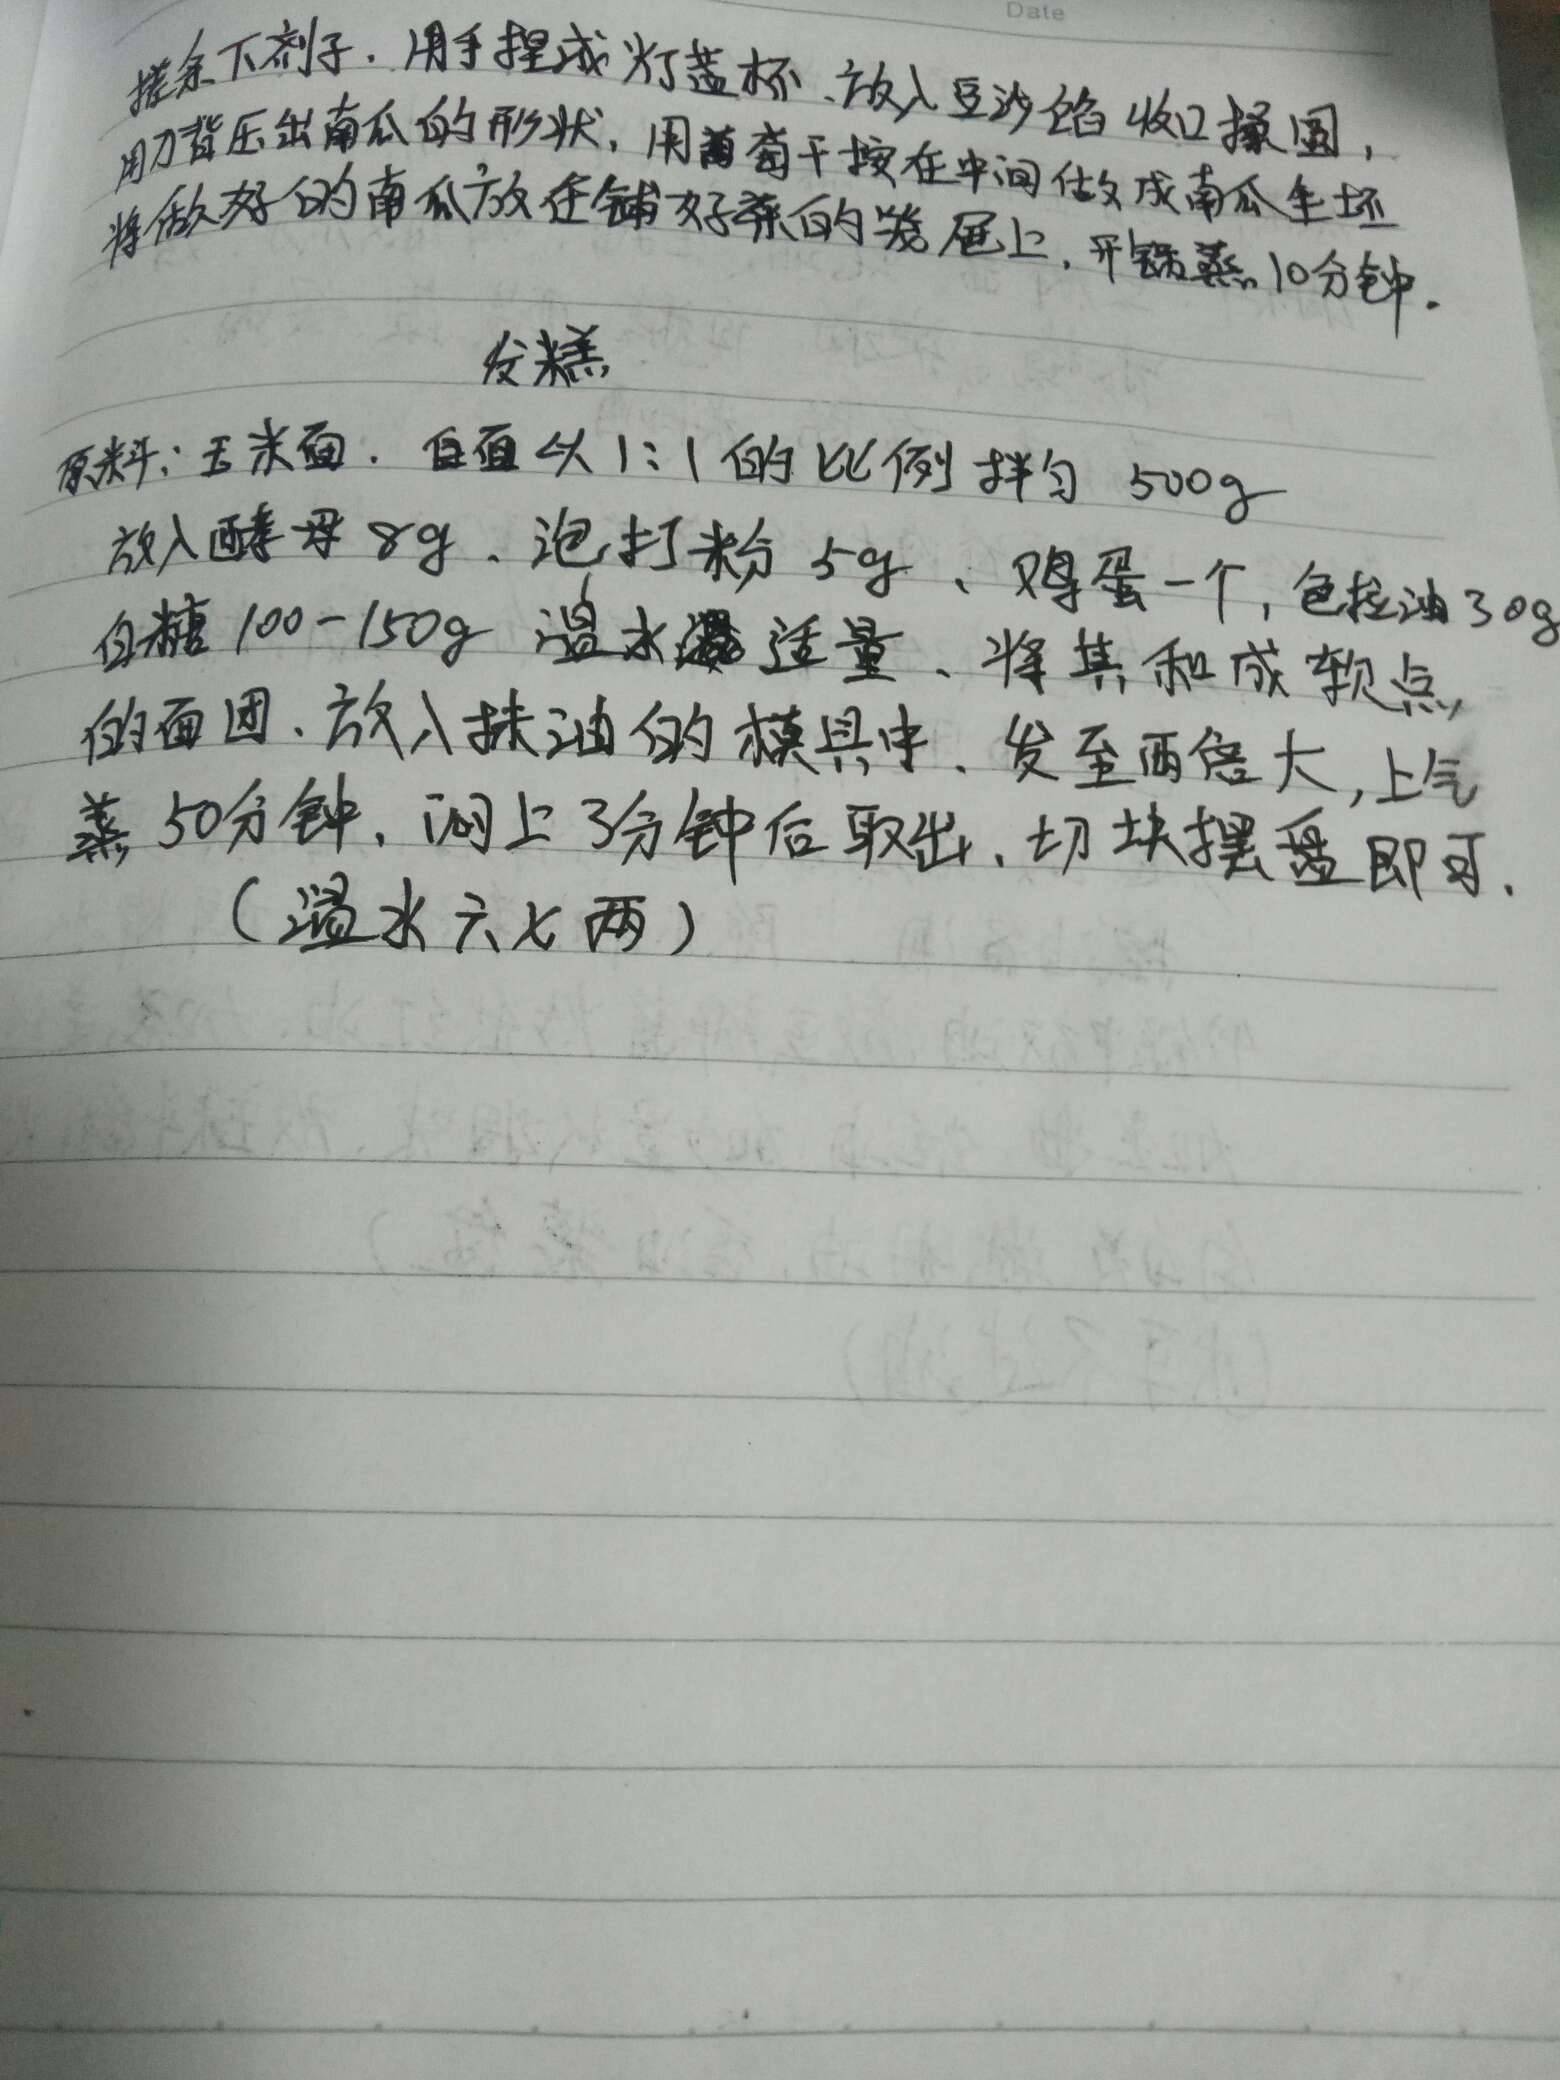 Date
搓条下剂子.用手捏成灯盏杯、放入豆沙馅收口揉圆,
用刀背压出南瓜的形状,用葡萄干按在中间做成南瓜生坯
将做好的南瓜放在铺好菜的笼屉上,开锅蒸10分钟.
发糕
原料:玉米面.白面以1:1的比例拌匀 500g
放入酵母8g、泡打粉5g、鸡蛋一个,色拉油30g
白糖100-150g 温水适量、将其和成软点
的面团、放入抹油的模具中、发至两倍大,上气
蒸50分钟,闷上3分钟后取出、切块摆盘即可.
(温水六七两)